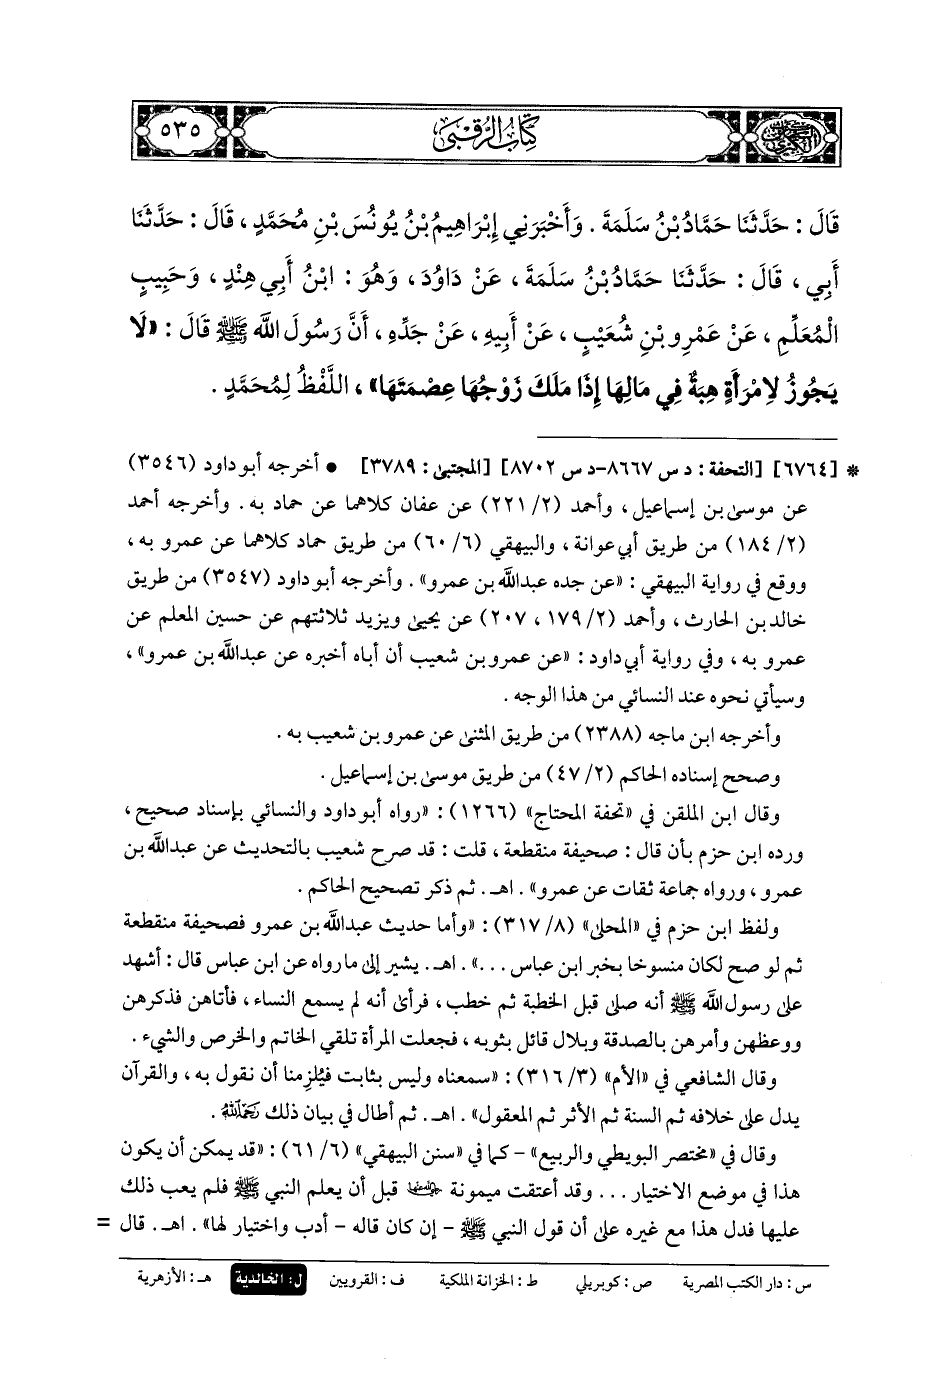 كِتَابُ الرُّقْبَى
٥٣٥
قَالَ : حَدَّثَنَا حَمَّادُ بْنُ سَلَمَةَ . وَأَخْبَرَنِي إِبْرَاهِيمُ بْنُ يُونُسَ بْنِ مُحَمَّدٍ ، قَالَ : حَدَّثَنَا
أَبِي ، قَالَ : حَدَّثَنَا حَمَّادُ بْنُ سَلَمَةَ ، عَنْ دَاوُدَ ، وَهُوَ : ابْنُ أَبِي هِنْدٍ ، وَحَبِيبٍ
الْمُعَلِّمِ ، عَنْ عَمْرِو بْنِ شُعَيْبٍ ، عَنْ أَبِيهِ ، عَنْ جَدِّهِ ، أَنَّ رَسُولَ اللَّه ﷺ قَالَ : «لَا
يَجُوزُ لِامْرَأَةٍ هِبَةٌ فِي مَالِهَا إِذَا مَلَكَ زَوْجُهَا عِصْمَتَهَا» ، اللَّفْظُ لِمُحَمَّدٍ .
* [٦٧٦٤] [التحفة : د س ٨٦٦٧-د س ٨٧٠٢] [المجتبى : ٣٧٨٩] ● أخرجه أبو داود (٣٥٤٦)
عن موسى بن إسماعيل ، وأحمد (٢/ ٢٢١) عن عفان كلاهما عن حماد به . وأخرجه أحمد
(٢/ ١٨٤) من طريق أبي عوانة ، والبيهقي (٦/ ٦٠) من طريق حماد كلاهما عن عمرو به ،
ووقع في رواية البيهقي : «عن جده عبدالله بن عمرو» . وأخرجه أبو داود (٣٥٤٧) من طريق
خالد بن الحارث ، وأحمد (٢/ ١٧٩ ، ٢٠٧) عن يحيى ويزيد ثلاثتهم عن حسين المعلم عن
عمرو به ، وفي رواية أبي داود : «عن عمرو بن شعيب أن أباه أخبره عن عبدالله بن عمرو» ،
وسيأتي نحوه عند النسائي من هذا الوجه .
وأخرجه ابن ماجه (٢٣٨٨) من طريق المثنى عن عمرو بن شعيب به .
وصحح إسناده الحاكم (٢/ ٤٧) من طريق موسى بن إسماعيل .
وقال ابن الملقن في «تحفة المحتاج» (١٢٦٦) : «رواه أبو داود والنسائي بإسناد صحيح ،
ورده ابن حزم بأن قال : صحيفة منقطعة ، قلت : قد صرح شعيب بالتحديث عن عبدالله بن
عمرو ، ورواه جماعة ثقات عن عمرو» . اهـ. ثم ذكر تصحيح الحاكم .
ولفظ ابن حزم في «المحلى» (٨/ ٣١٧) : «وأما حديث عبدالله بن عمرو فصحيفة منقطعة
ثم لو صح لكان منسوخا بخبر ابن عباس ...» . اهـ. يشير إلى ما رواه عن ابن عباس قال : أشهد
على رسول الله ﷺ أنه صلى قبل الخطبة ثم خطب ، فرأى أنه لم يسمع النساء ، فأتاهن فذكرهن
ووعظهن وأمرهن بالصدقة وبلال قائل بثوبه ، فجعلت المرأة تلقي الخاتم والخرص والشيء .
وقال الشافعي في «الأم» (٣/ ٣١٦) : «سمعناه وليس بثابت فيُلزِمنا أن نقول به ، والقرآن
يدل على خلافه ثم السنة ثم الأثر ثم المعقول» . اهـ. ثم أطال في بيان ذلك رَحِمَهُ اللَّهُ .
وقال في «مختصر البويطي والربيع» - كما في «سنن البيهقي» (٦/ ٦١) : «قد يمكن أن يكون
هذا في موضع الاختيار ... وقد أعتقت ميمونة قبل أن يعلم النبي ﷺ فلم يعب ذلك
عليها فدل هذا مع غيره على أن قول النبي ﷺ - إن كان قاله - أدب واختيار لها» . اهـ. قال =
س : دار الكتب المصرية ص : كوبريلي ط : الخزانة الملكية ف : القرويين ل : الخالدية هـ : الأزهرية